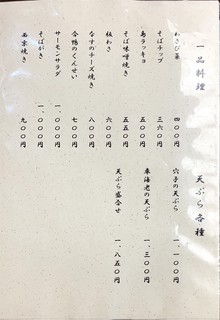 一品料理
わさび菜 四〇〇円
そばチップ 三六〇円
島ラッキョ 五〇〇円
そば味噌焼き 五五〇円
板わさ 六〇〇円
なすのチーズ焼き 八〇〇円
合鴨のくんせい 七〇〇円
サーモンサラダ 一、〇〇〇円
そばがき 一、〇〇〇円
西京焼き 九〇〇円
天ぷら各種
穴子の天ぷら 一、一〇〇円
車海老の天ぷら 一、三〇〇円
天ぷら盛合せ 一、八五〇円